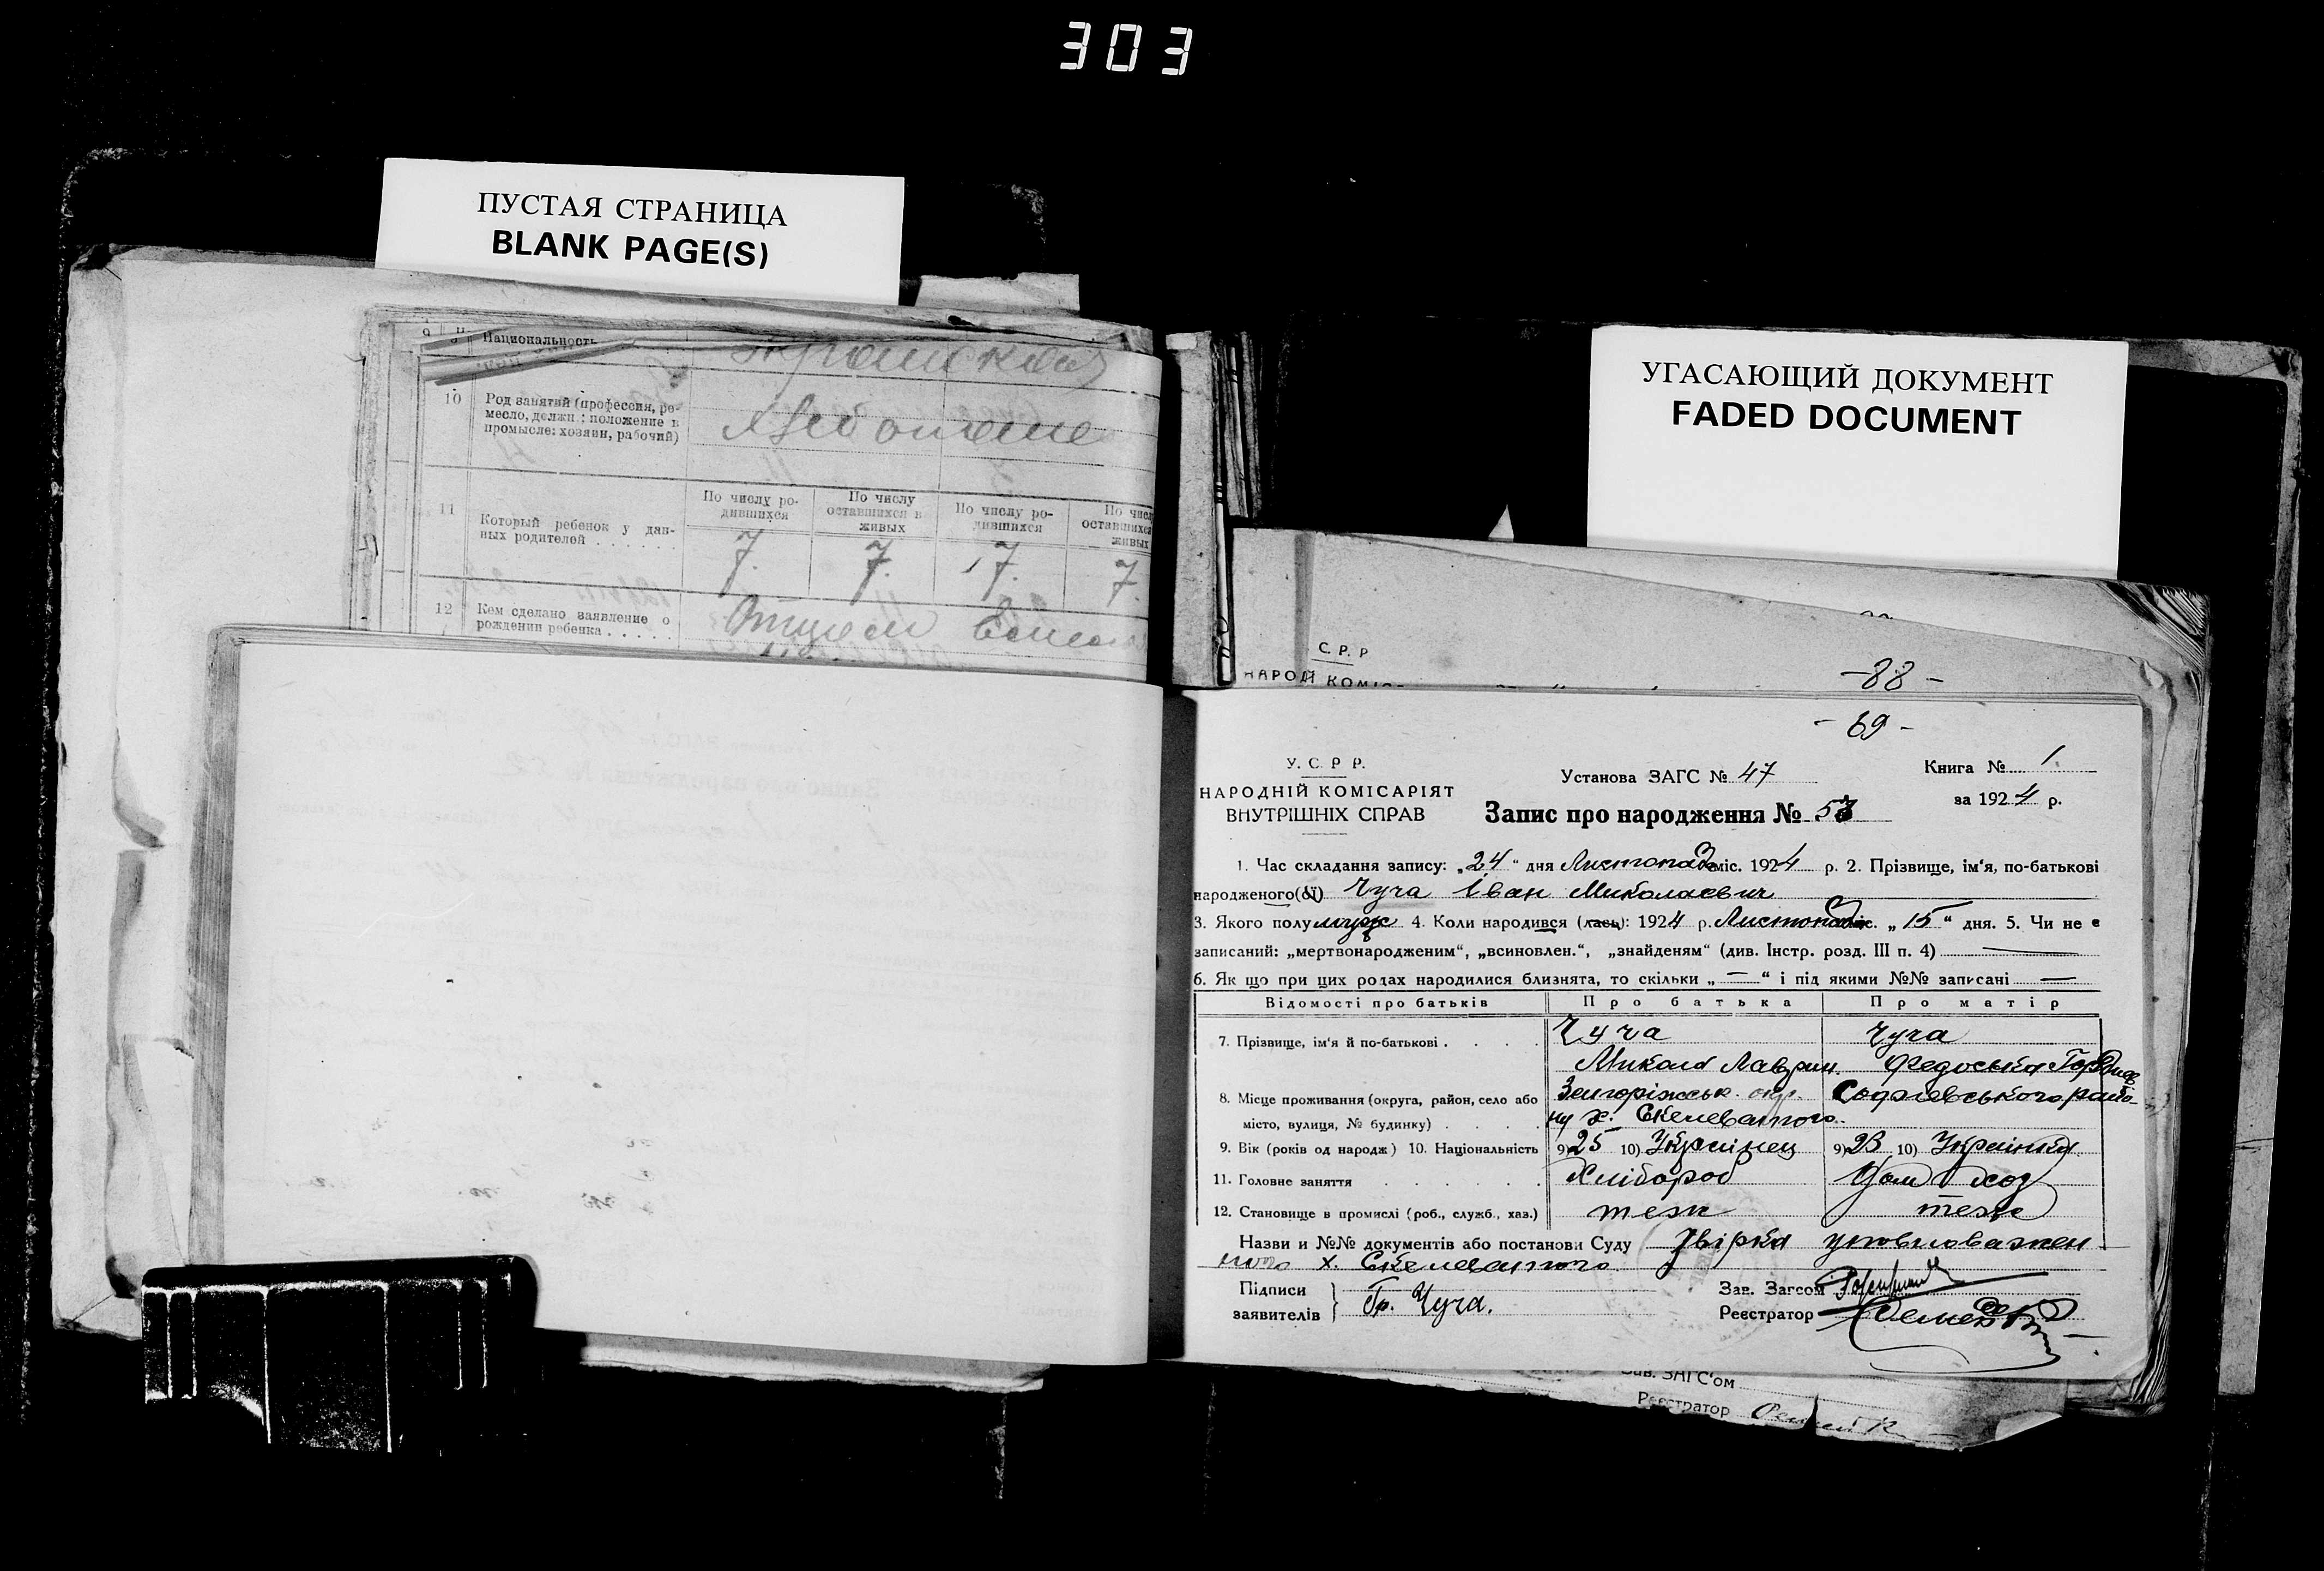 303
ПУСТАЯ СТРАНИЦА
BLANK PAGE(S)
УГАСАЮЩИЙ ДОКУМЕНТ
FADED DOCUMENT
9 Национальность
10 Род занятий (профессия, ре-
месло, должн.: положение в
промысле: хозяин, рабочий)
11 Который ребенок у дан-
ных родителей . . . . . .
По числу ро-
дившихся
По числу
оставшихся в
живых
По числу ро-
дившихся
По числ
оставшихся
живых
7. 7. 7. 7.
12 Кем сделано заявление о
рождении ребенка . . . . .
Отцем
С. Р. Р
НАРОД КОМІС
-88-
-69-
У. С. Р. Р.
НАРОДНІЙ КОМІСАРІЯТ
ВНУТРІШНІХ СПРАВ
Установа ЗАГС № 47
Запис про народження № 53
Книга № 1
за 1924 р.
1. Час складання запису: „24“ дня Листопада міс. 1924 р. 2. Прізвище, ім‘я, по-батькові
народженого(ої) Чуча Іван Миколаевич
3. Якого полу муж 4. Коли народився (лась): 1924 р. Листопада міс. „15“ дня. 5. Чи не є
записаний: „мертвонародженим“, „всиновлен.“, „знайденям“ (див. Інстр. розд. III п. 4) —
6. Як що при цих родах народилися близнята, то скільки „—“ і під якими №№ записані —
Відомості про батьків Про батька Про матір
7. Прізвище, ім‘я й по-батькові . . . . Чуча Чуча
Микола Лаврин. Федоська
8. Місце проживання (округа, район, село або
місто, вулиця, № будинку) . . . .
Запоріжськ. окр. Софіевського райо-
ну х. Скелеватого.
9. Вік (років од народж) 10. Національність 9) 25 10) Українец 9) 23 10) Українка
11. Головне заняття . . . . . . Хлібороб Дом хоз
12. Становище в промислі (роб., служб., хаз.) теж теж
Назви и №№ документів або постанови Суду Звірка уповноважен
ного х. Скелеватого.
Підписи
заявителів } Гр. Чуча.
Зав. Загсом
Реєстратор
Зав. ЗАГС‘ом
Реєстратор